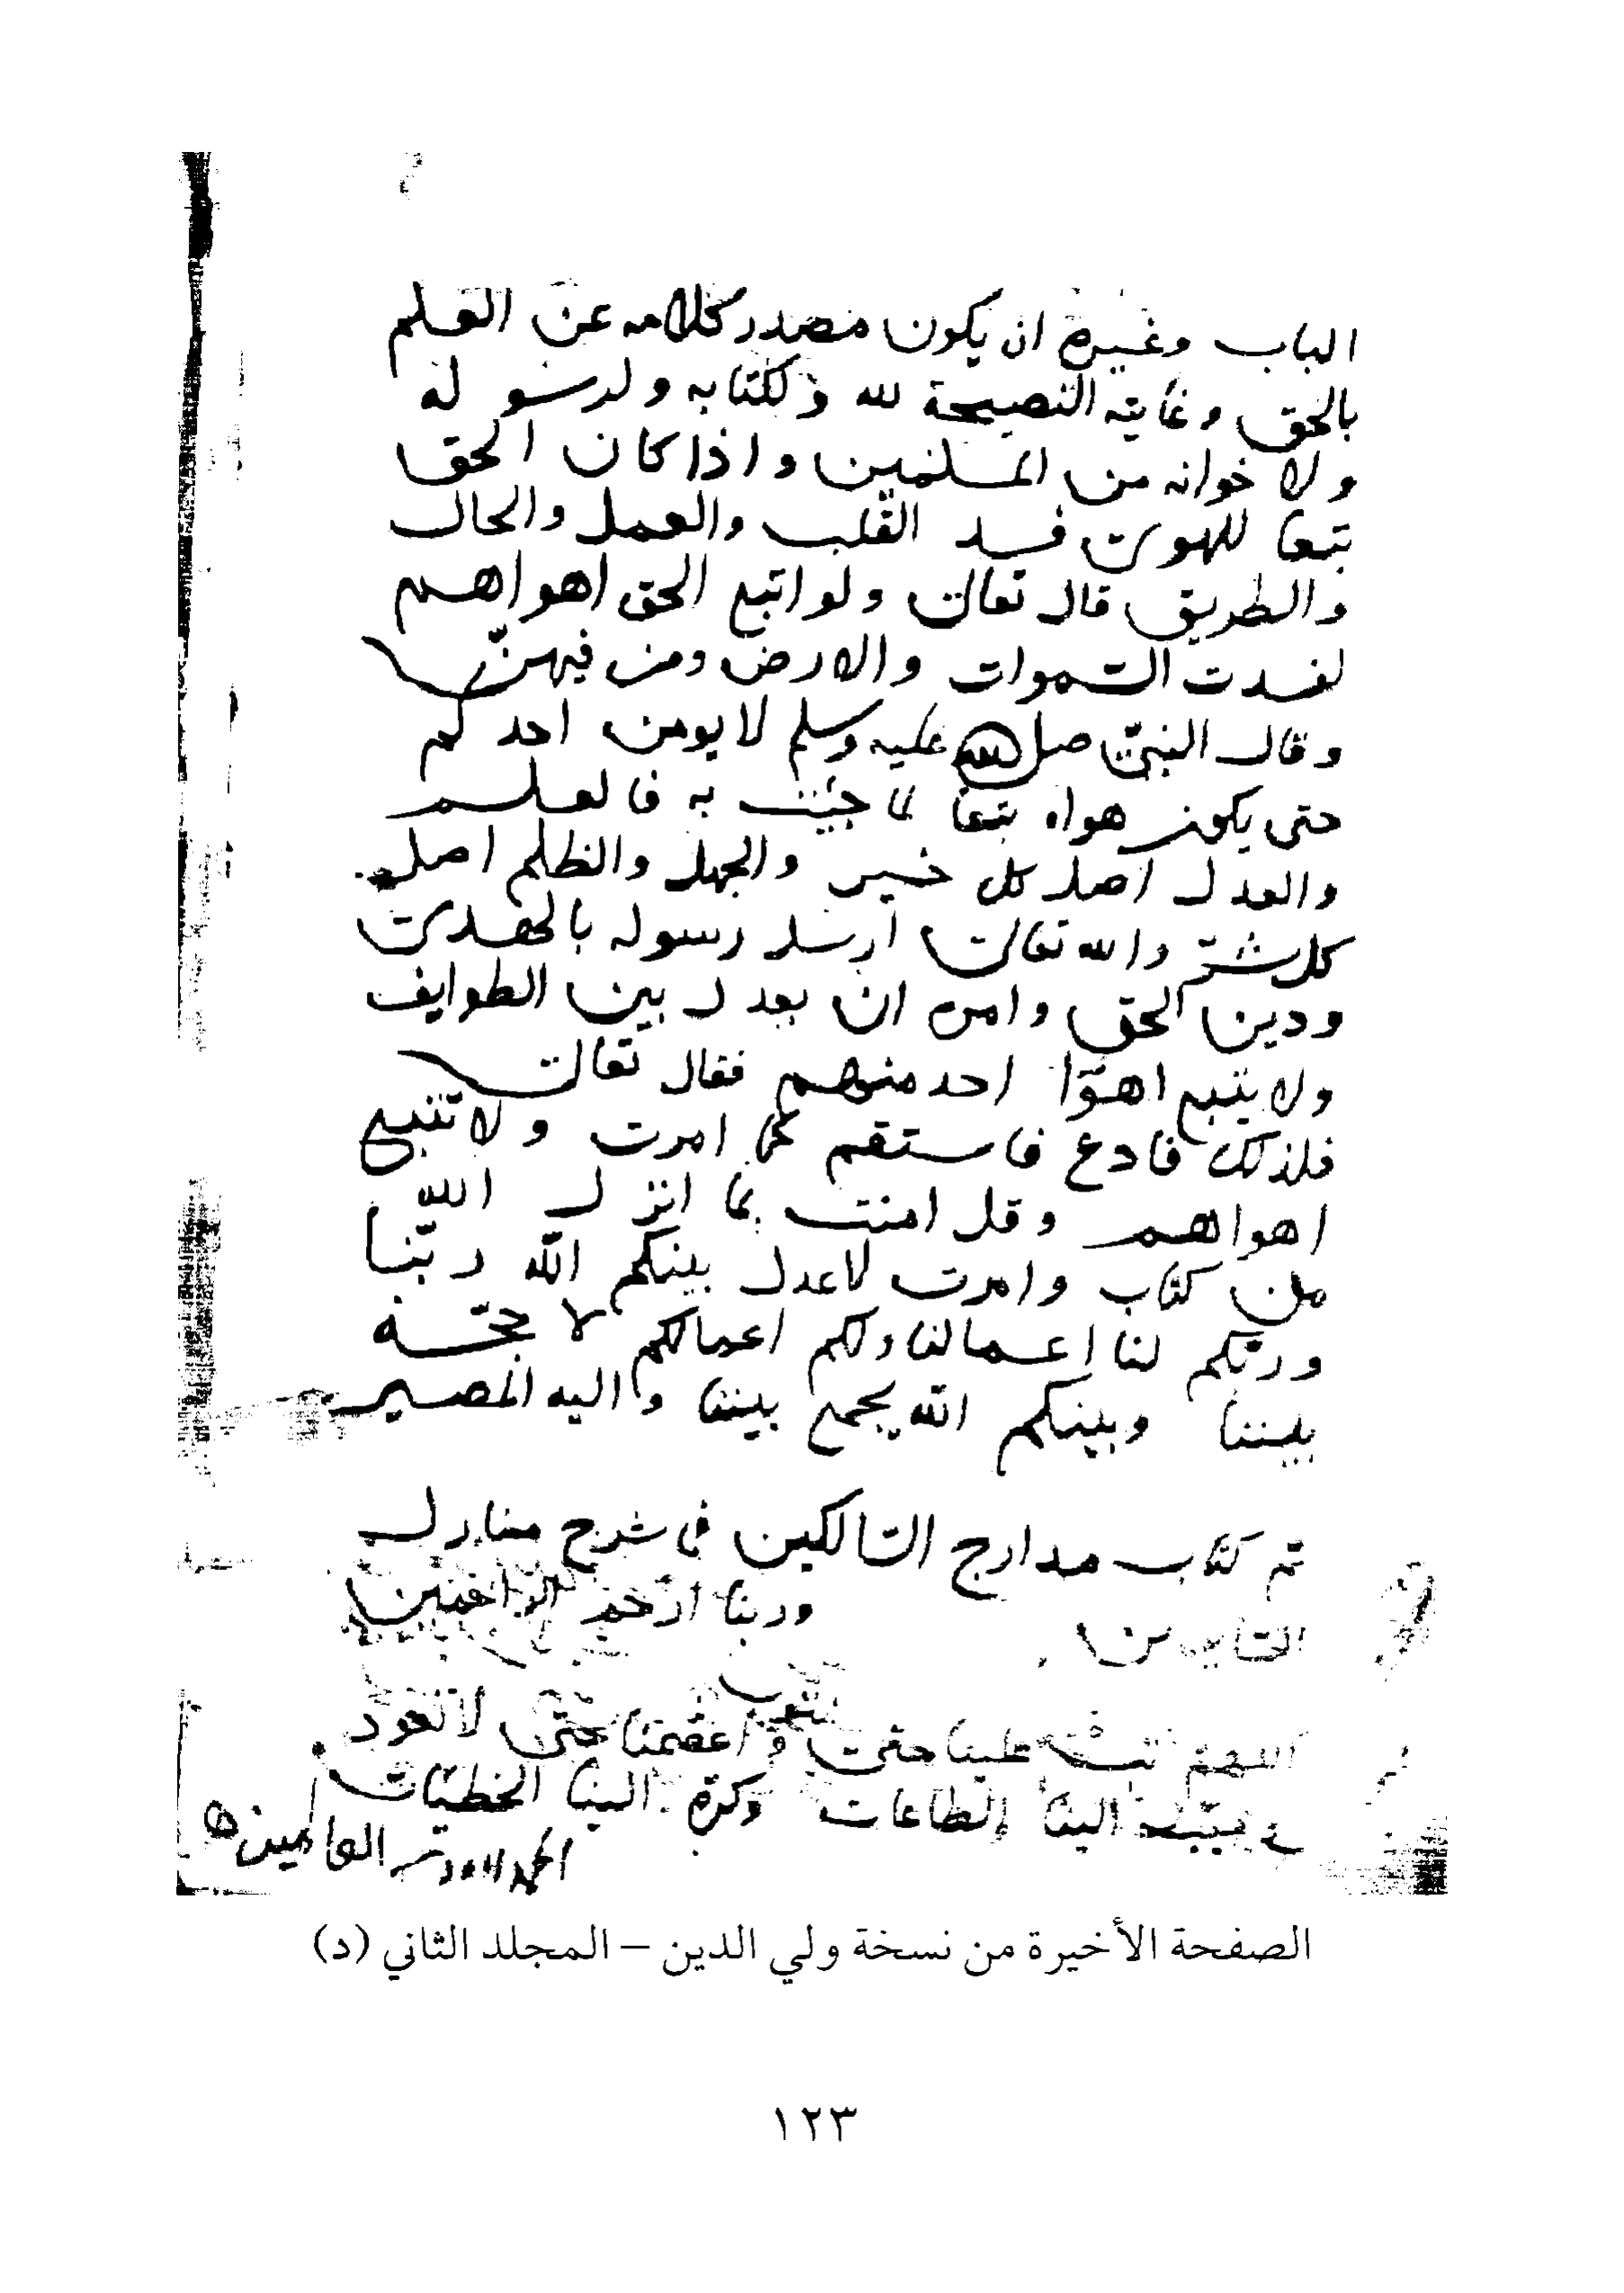 الباب وغيره ان يكون مصدر كلامه عن العلم
بالحق وغايته النصيحة لله ولكتابه ولرسوله
ولاخوانه من المسلمين واذا كان الحق
تبعا للهوى فسد القلب والعمل والحال
والطريق قال تعالى ولو اتبع الحق اهواهم
لفسدت السموات والارض ومن فيهن
وقال النبي صلى الله عليه وسلم لا يومن احدكم
حتى يكون هواه تبعا لما جيت به فالعلم
والعدل اصل كل خير والجهل والظلم اصل
كل شر والله تعالى ارسل رسوله بالهدى
ودين الحق وامره ان يعدل بين الطوايف
ولا يتبع اهوا احد منهم فقال تعالى
فلذلك فادع فاستقم كما امرت ولا تتبع
اهواهم وقل امنت بما انزل الله
من كتاب وامرت لاعدل بينكم الله ربنا
وربكم لنا اعمالنا ولكم اعمالكم لا حجة
بيننا وبينكم الله يجمع بيننا واليه المصير
تم كتاب مدارج السالكين في شرح منازل
وربنا ارحم الراحمين
اللهم تب علينا حتى واعصمنا حتى لا نعود
الينا الطاعات وكره الينا الخطيات
الحمد لله رب العالمين
الصفحة الأخيرة من نسخة ولي الدين – المجلد الثاني (د)
١٢٣